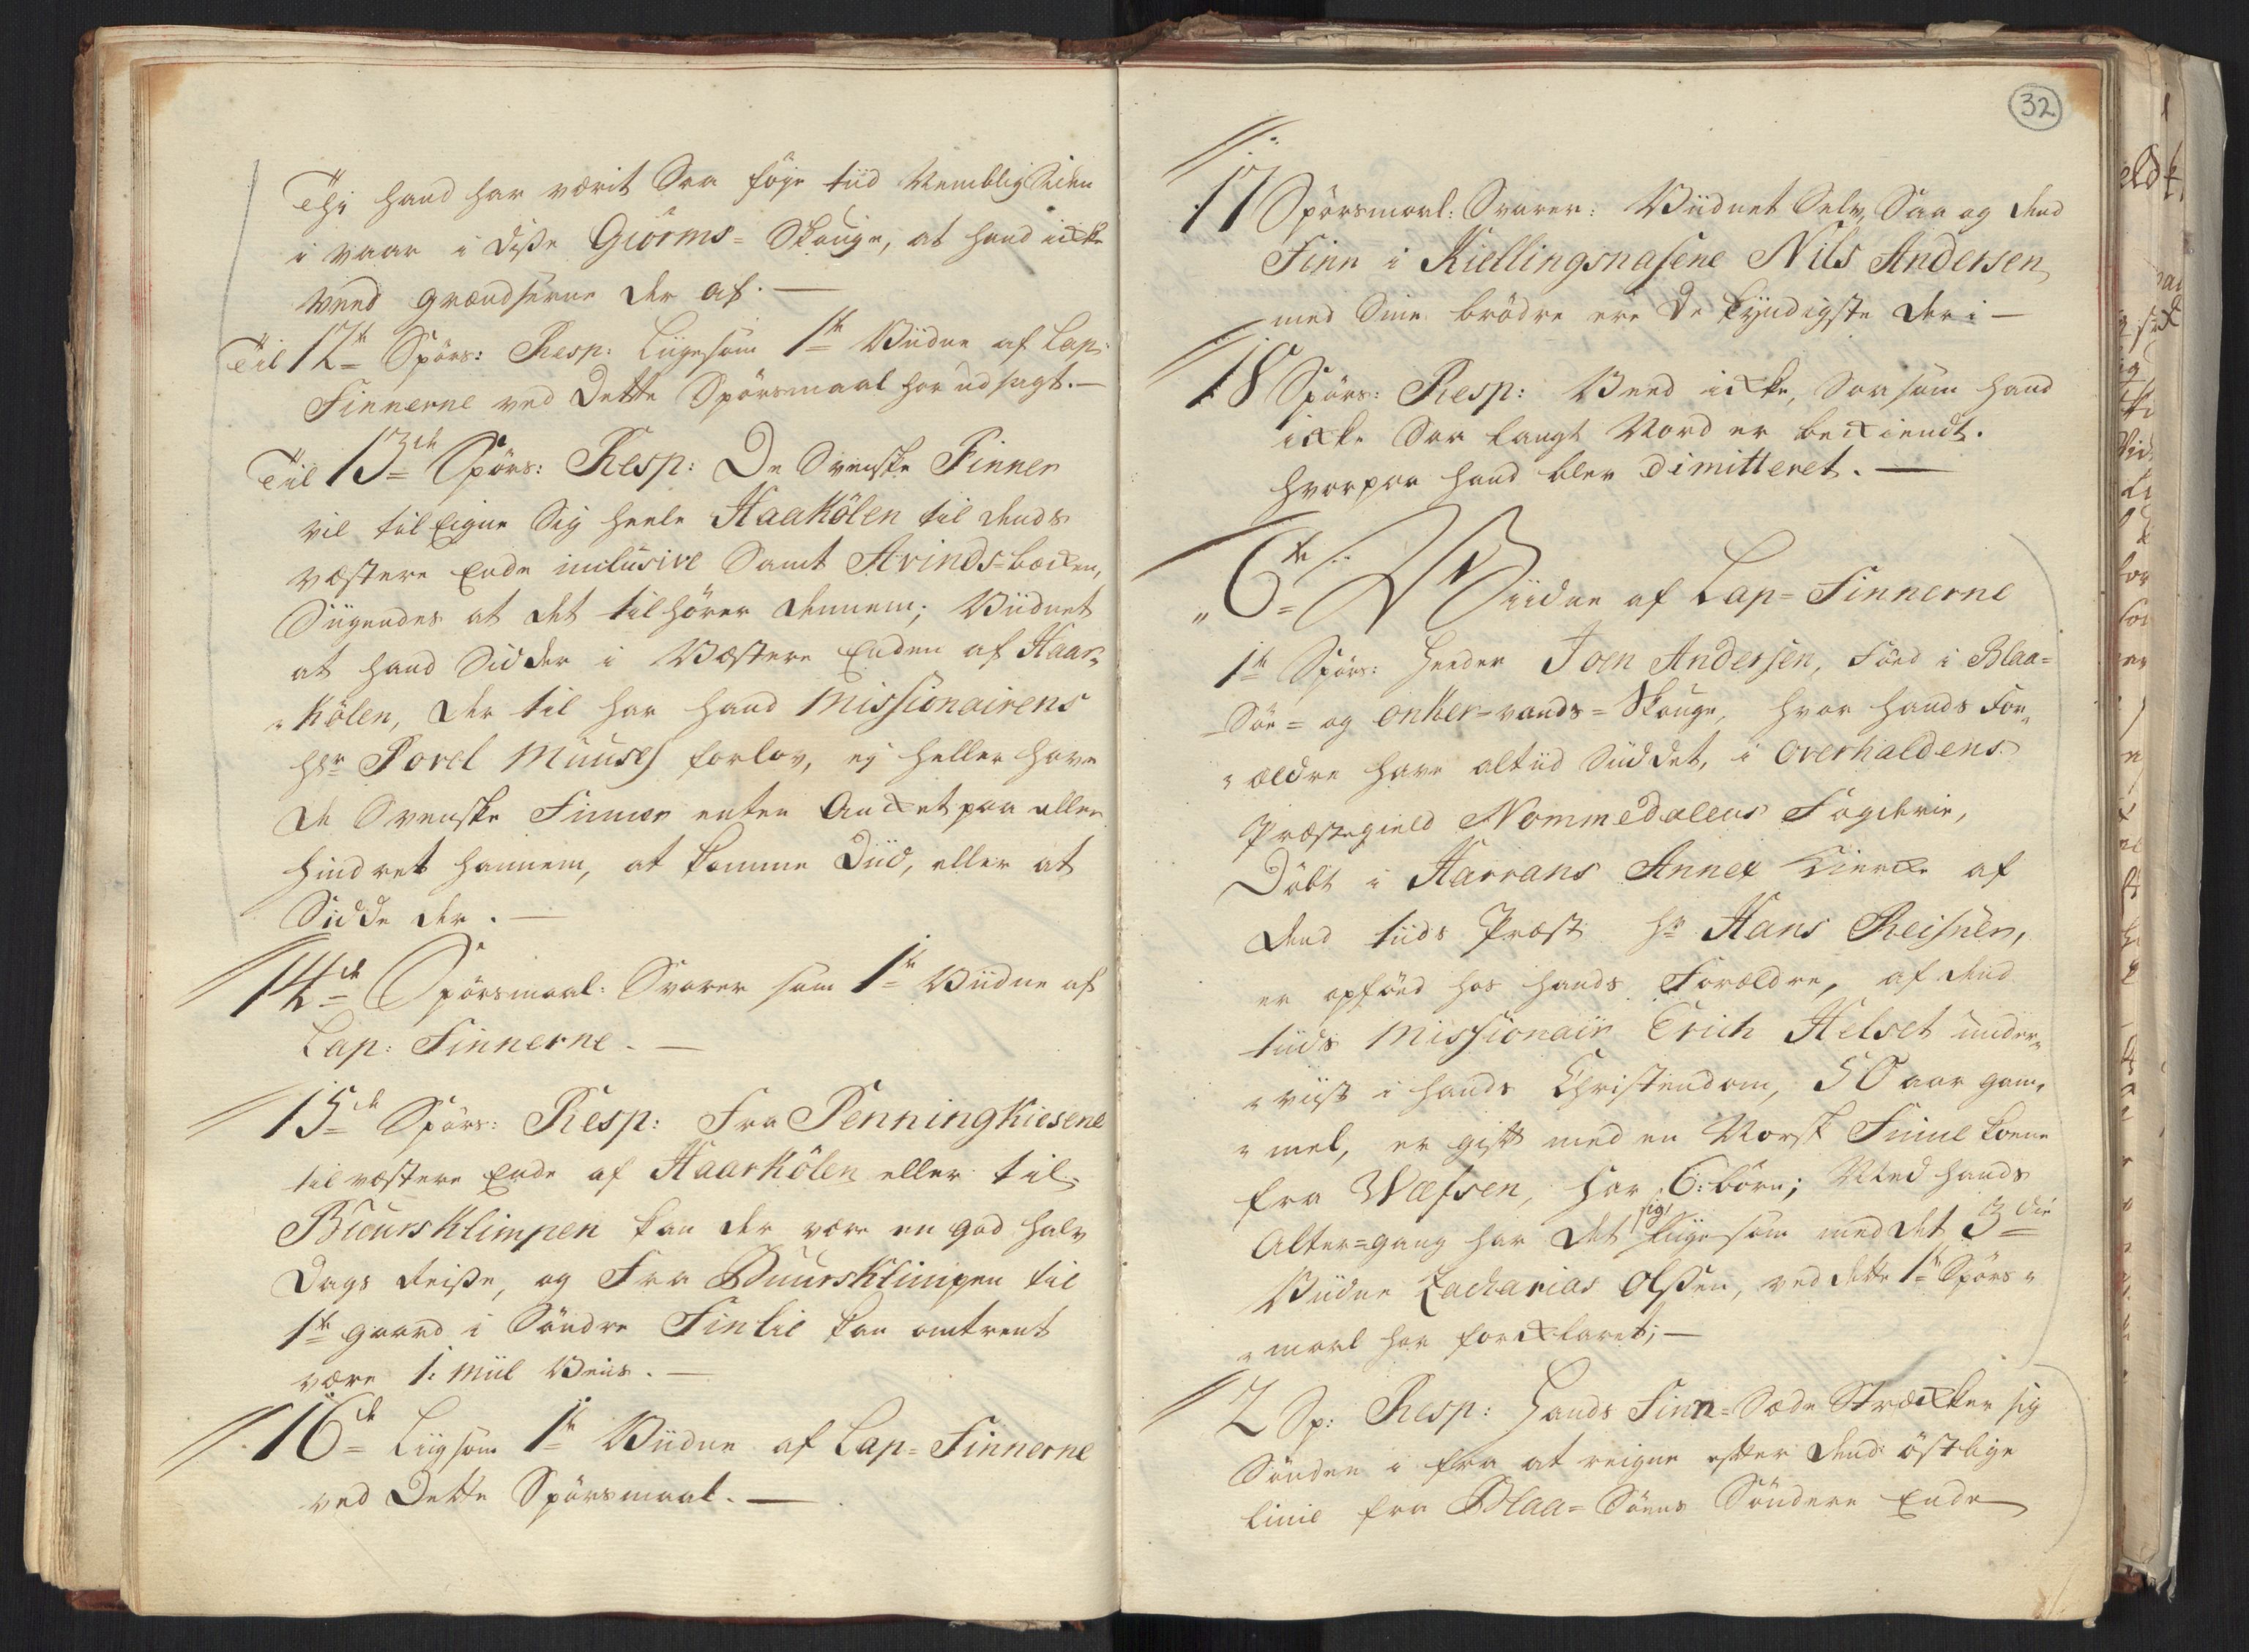 Thj hand har værit Saa föye tiid Nemblig Siden
i vaar i diße Giörms= Skouge, at hand icke
veed grændserne der af. —
Til 12te Spörs: Resp: Liigesom 1te Viidne af Lap:
Finnerne ved Dette Spörsmaal har udsagt. —
Til 13de Spörs: Resp: De Svenske Finner
vil til Eigne Sig heele Haakölen til dends
væstere Ende inclusive Samt Arinds=bæcken,
Siigendes at det tilhörer dennem; Viidnet
at hand Sidder i Væstere Enden af Haar„
„kölen, der til har hand Missionairens
Hr Povel Muuses forlov, ej heller have
de Svenske Finner enten Ancket paa eller
hindret hannem, at komme Diid, eller at
Sidde der. —
14de Spörsmaal: Svarer som 1te Viidne af
Lap: Finnerne. —
15de Spörs: Resp: Fra Penningkiesene
til væstere Ende af Haarkölen eller til
Buursklimpen kan der være en god halv
Dags Reiße, og Fra Buursklimpen til
1te gaard i Söndre Finlie kan omtrent
være 1: Miil Veis. —
16de Liigsom 1te Viidne af Lap= Finnerne
ved Dette Spörsmaal. —
32
17 Spörsmaal: Svarer: Viidnet Selv, Saa og dend
Finn i Kiellingsnasene Nils Andersen
med Sine brödre ere De kyndigste der i —
18 Spörs: Resp: Veed icke, Saasom hand
icke Saa langt Nord er beckiendt.
hvorpaa hand blev Dimitteret. —
„6te Viidne af Lap= Finnerne
1te Spörs: Heeder Joen Andersen, Föed i Blaa=
Söe= og Onker=vands= Skouge, hvor hands For„
„ældre have altiid Siddet, i Overhaldens
Præstegield Nommedalens Fögderie,
Döbt i Harrans Annex Kiercke af
dend tiids Præst Hr Hans Reisner,
er opföed hos hands Forældre, af dend
tiids Missionair Erich Helset under„
„viist i hands Christendom, 50 aar gam„
„mel, er gift med en Norsk Finne kone
fra Wefsen, har 6: börn; Med hands
Alter=gang har det sig Liigesom med det 3die
Viidne Zacharias Olßen, ved dette 1te Spörs„
„maal har forcklaret; —
2 Sp: Resp: Hands Finn= Sæde Stræcker sig
Sönden i fra at reigne efter dend östlige
Linie fra Blaa= Söens Söndere Ende